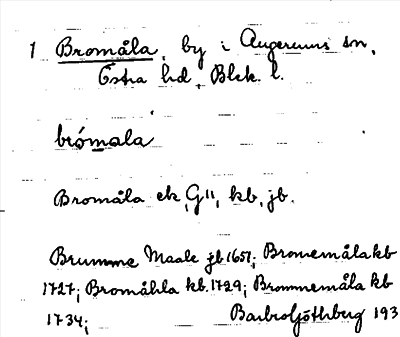 1 Bromåla, by i Augerums sn,
Östra hd, Blek. l.
brómala
Bromåla ek, G11, kb, jb.
Brumme Maale jb 1651; Bromemåla kb
1727; Bromåhla kb. 1729; Brommemåla kb
1734; Barbro Göthberg 193